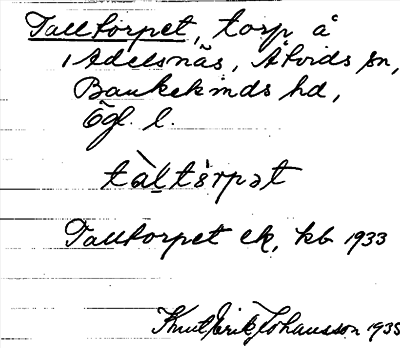 Talltorpet, torp å
Adelsnäs, Åtvids sn,
Bankekinds hd,
Ögl. l.
tàḷtò̤rpət
Talltorpet ek, kb 1933
Knut Erik Johansson 1935